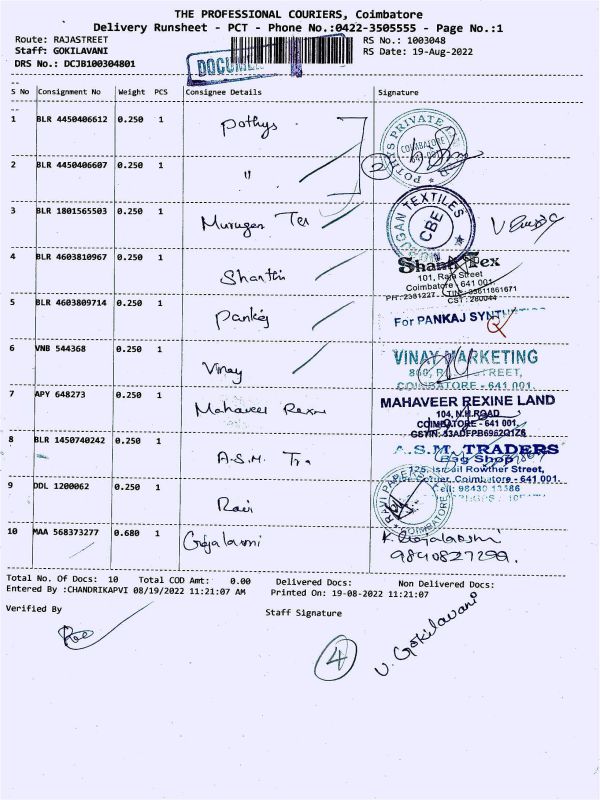 THE PROFESSIONAL COURIERS, Coimbatore
Delivery Runsheet - PCT - Phone No.:0422-3505555 - Page No.:1
Route: RAJASTREET RS No.: 1003048
Staff: GOKILAVANI RS Date: 19-Aug-2022
DRS No.: DCJB100304801
S No Consignment No Weight PCS Consignee Details Signature
1 BLR 4450406612 0.250 1 Pothys POTHYS PRIVATE COIMBATORE
2 BLR 4450406607 0.250 1 "
3 BLR 1801565503 0.250 1 Murugan Tex MURUGAN TEXTILES CBE
4 BLR 4603810967 0.250 1 Shanthi Shanti Tex
101, Raja Street
Coimbatore - 641 001.
PH : 2381227
CST : 280044
5 BLR 4603809714 0.250 1 Pankaj For PANKAJ
6 VNB 544368 0.250 1 Vinay VINAY MARKETING
COIMBATORE - 641 001.
7 APY 648273 0.250 1 Mahaveer Rexine MAHAVEER REXINE LAND
104, N.H.ROAD
COIMBATORE - 641 001.
8 BLR 1450740242 0.250 1 A.S.M. Tra A.S.M. TRADERS
Bag Shop
Rowther Street,
Coimbatore - 641 001.
9 DDL 1200062 0.250 1 Ravi RAVI PAPERS COIMBATORE
10 MAA 568373277 0.680 1 Gajalaxmi K. Gajalakshmi
9840827299.
Total No. Of Docs: 10 Total COD Amt: 0.00 Delivered Docs: Non Delivered Docs:
Entered By :CHANDRIKAPVI 08/19/2022 11:21:07 AM Printed On: 19-08-2022 11:21:07
Verified By Staff Signature
4
V. Gokilavani